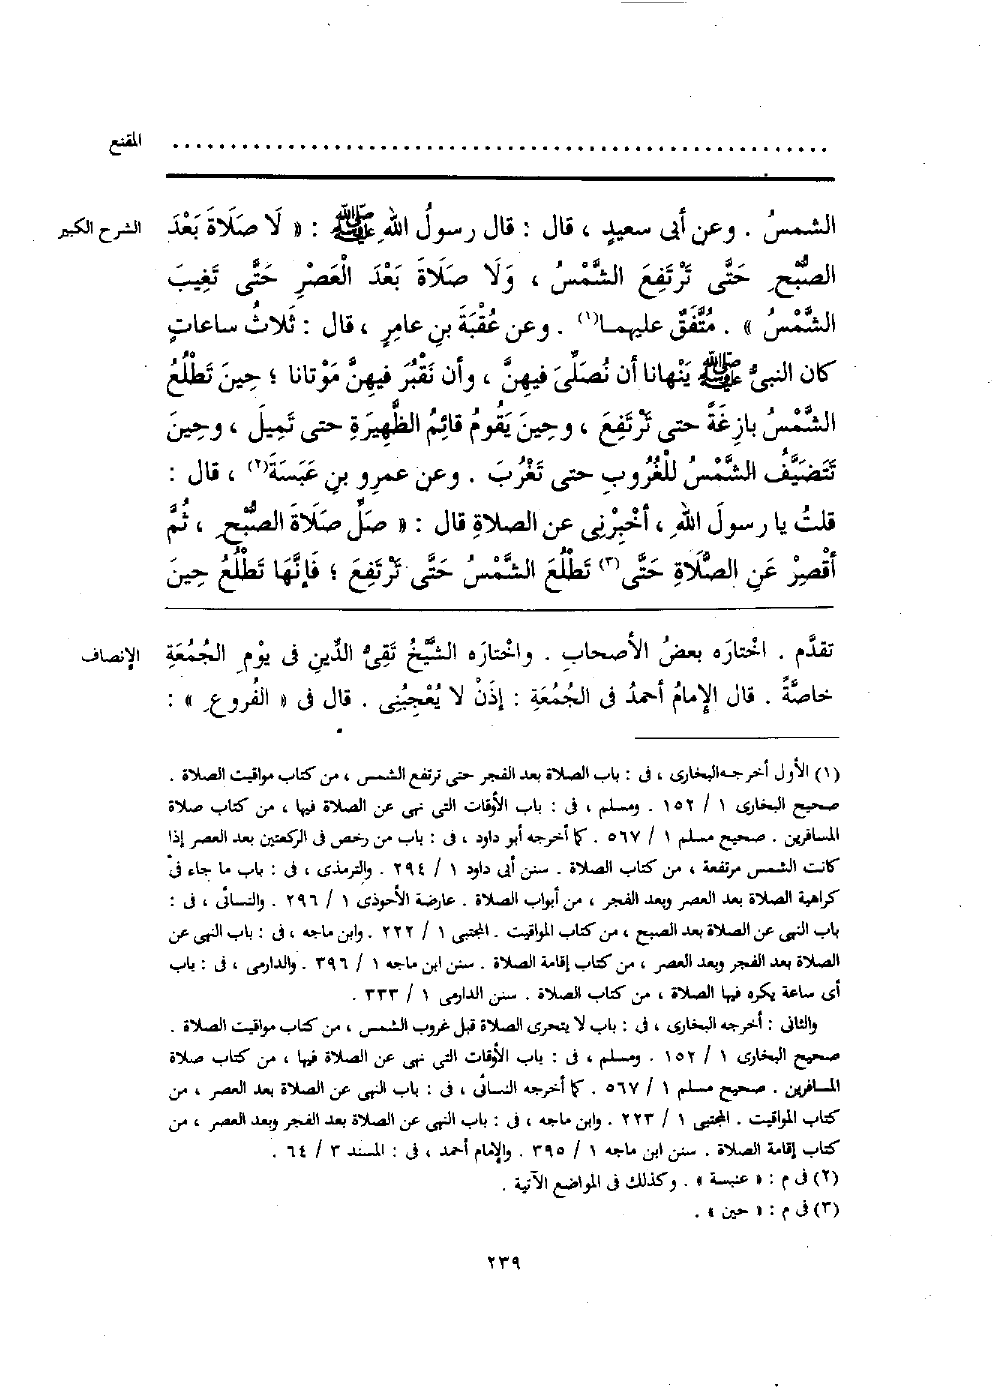 المقنع ................................................
الشرح الكبير
الشمسُ . وعن أبى سعيدٍ ، قال : قال رسولُ اللهِ ﷺ : « لَا صَلَاةَ بَعْدَ
الصُّبْحِ حَتَّى تَرْتَفِعَ الشَّمْسُ ، وَلَا صَلَاةَ بَعْدَ الْعَصْرِ حَتَّى تَغِيبَ
الشَّمْسُ » . مُتَّفَقٌ عليهما(١) . وعن عُقْبَةَ بنِ عامِرٍ ، قال : ثَلاثُ ساعاتٍ
كان النبىُّ ﷺ يَنْهانا أن نُصَلِّىَ فيهِنَّ ، وأن نَقْبُرَ فيهِنَّ مَوْتانا ؛ حِينَ تَطْلُعُ
الشَّمْسُ بازِغَةً حتى تَرْتَفِعَ ، وحِينَ يَقُومُ قائِمُ الظَّهِيَرةِ حتى تَمِيلَ ، وحِينَ
تَتَضَيَّفُ الشَّمْسُ للْغُرُوبِ حتى تَغْرُبَ . وعن عمرِو بنِ عَبَسَةَ(٢) ، قال :
قلتُ يا رسولَ اللهِ ، أخْبِرْنِى عن الصلاةِ قال : « صَلِّ صَلَاةَ الصُّبْحِ ، ثُمَّ
أقْصِرْ عَنِ الصَّلَاةِ حَتَّى(٣) تَطْلُعَ الشَّمْسُ حَتَّى تَرْتَفِعَ ؛ فَإنَّهَا تَطْلُعُ حِينَ
الإنصاف
تقدَّم . اخْتارَه بعضُ الأصحابِ . واخْتارَه الشَّيْخُ تَقِىُّ الدِّينِ فى يوْمِ الجُمُعَةِ
خاصَّةً . قال الإمامُ أحمدُ فى الجُمُعَةِ : إذَنْ لا يُعْجِبُنِى . قال فى « الفُروعِ » :
(١) الأول أخرجه البخارى ، فى : باب الصلاة بعد الفجر حتى ترتفع الشمس ، من كتاب مواقيت الصلاة .
صحيح البخارى ١ / ١٥٢ . ومسلم ، فى : باب الأوقات التى نهى عن الصلاة فيها ، من كتاب صلاة
المسافرين . صحيح مسلم ١ / ٥٦٧ . كما أخرجه أبو داود ، فى : باب من رخص فى الركعتين بعد العصر إذا
كانت الشمس مرتفعة ، من كتاب الصلاة . سنن أبى داود ١ / ٢٩٤ . والترمذى ، فى : باب ما جاء فى
كراهية الصلاة بعد العصر وبعد الفجر ، من أبواب الصلاة . عارضة الأحوذى ١ / ٢٩٦ . والنسائى ، فى :
باب النهى عن الصلاة بعد الصبح ، من كتاب المواقيت . المجتبى ١ / ٢٢٢ . وابن ماجه ، فى : باب النهى عن
الصلاة بعد الفجر وبعد العصر ، من كتاب إقامة الصلاة . سنن ابن ماجه ١ / ٣٩٦ . والدارمى ، فى : باب
أى ساعة يكره فيها الصلاة ، من كتاب الصلاة . سنن الدارمى ١ / ٣٣٣ .
والثانى : أخرجه البخارى ، فى : باب لا يتحرى الصلاة قبل غروب الشمس ، من كتاب مواقيت الصلاة .
صحيح البخارى ١ / ١٥٢ . ومسلم ، فى : باب الأوقات التى نهى عن الصلاة فيها ، من كتاب صلاة
المسافرين . صحيح مسلم ١ / ٥٦٧ . كما أخرجه النسائى ، فى : باب النهى عن الصلاة بعد العصر ، من
كتاب المواقيت . المجتبى ١ / ٢٢٣ . وابن ماجه ، فى : باب النهى عن الصلاة بعد الفجر وبعد العصر ، من
كتاب إقامة الصلاة . سنن ابن ماجه ١ / ٣٩٥ . والإمام أحمد ، فى : المسند ٣ / ٦٤ .
(٢) فى م : « عنبسة » . وكذلك فى المواضع الآتية .
(٣) فى م : « حين » .
٢٣٩